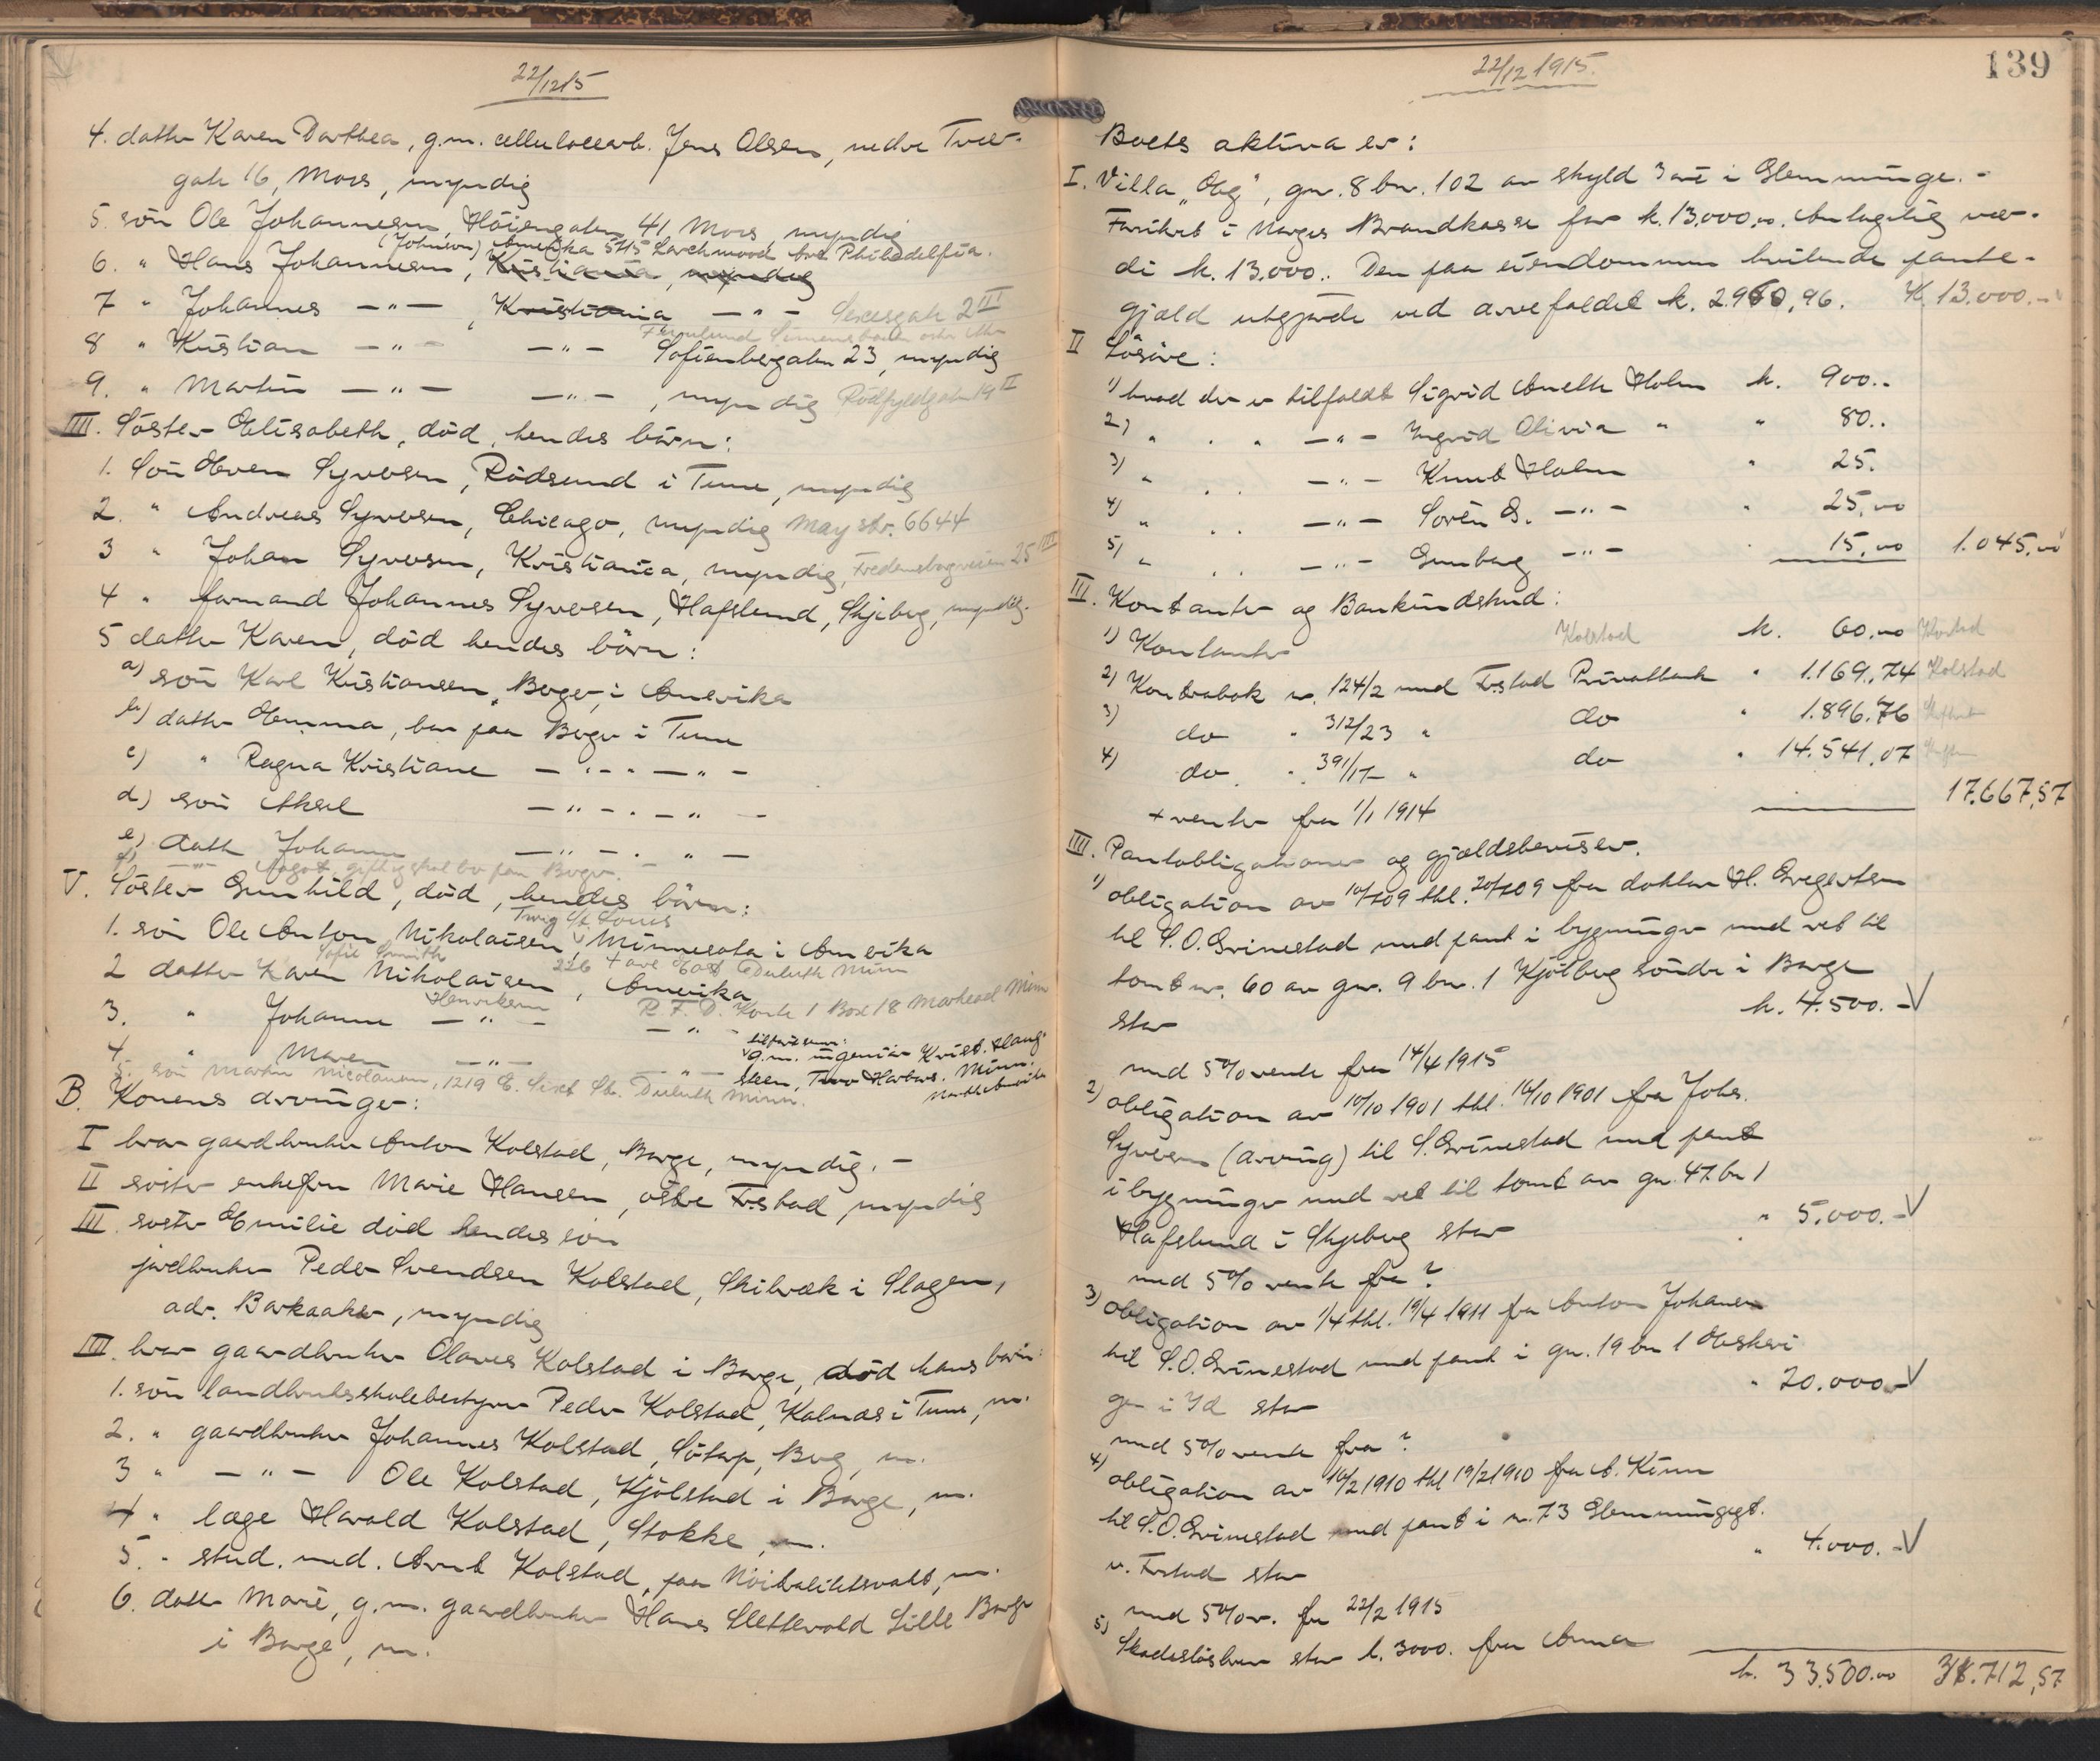 22/12 15
4. datter Karen Dorthea, g.m. cellulosearb. Jens Olsen, nedre Tvær-
gate 16, Moss, myndig
5. søn Ole Johannesen, Høiengaten 41 Moss, myndig
(Johnson) Amerika 5415 Larchmood Ave Philadelfia.
6. " Hans Johannesen, Kristiania, myndig
7 " Johannes —"— , Kristiania —"— 2 III
8 " Kristian —"— —"— Sofienberggaten 23, myndig
9. " Martin —"— —"— , myndig Rødfyldgaten 19 II
IIII. Søster Elisabeth, død, hendes børn:
1. Søn Even Syversen, Rødsund i Tune, myndig
2. " Andreas Syversen, Chicago, myndig May str. 6644
3 " Johan Syversen, Kristiania, myndig, Fredensborgveien 25 III
4 " formand Johannes Syversen, Hafslund, Skjeberg, myndig.
5 datter Karen, død hendes børn:
a) søn Karl Kristiansen, Borger, i Amerika
b) datter Emma, bor paa Borger i Tune
c) " Ragna Kristiane — " — — " —
d) søn Aksel — " — — " —
e) datt Johanne — " — — " —
f) —"— Aagot, gift og skal bo paa Borger.
V. Søster Gunhild, død, hendes børn:
1. søn Ole Anton Nikolaisen, Minnesota i Amerika
Sofie Smith 226 4 ave East Duluth Minn
2 datter Karen Nikolaisen, Amerika
Henriksen R.F.D. Route 1 Box 18 Morhead Minn
3. " Johanne —"— —"—
4. " Maren —"— —"— g.m. ingeniør Krist. Haug-
steen, Two Harbors. Minn.
North Amerika
5. søn Martin Nicolausen, 1219 E. Sixt Str. Duluth Minn.
B. Konens arvinger:
I bror gaardbruker Anton Kolstad, Borge, myndig. —
II søster enkefru Marie Hansen, østre Fr.stad, myndig
III. søster Emilie død hendes søn
jordbruker Peder Svendsen Kolstad, Skibræk i Slagen,
adr. Barkaaker, myndig
IIII. bror gaardbruker Olaves Kolstad i Borge, død hans børn:
1. søn landbruksskolebestyrer Peder Kolstad, Kalnæs i Tune, m.
2. " gaardbruker Johannes Kolstad, Søtorp, Borg, m.
3 " — " — Ole Kolstad, Kjølstad i Borge, m.
4 " læge Harald Kolstad, Stokke, m.
5. " stud. med. Arnt Kolstad, paa Nøitralitetsvakt, m.
6. datter Marie, g.m. gaardbruker Hans Slettevold Lille Borge
i Borge, m.
22/12 1915.
139
Boets aktiva er:
I. Villa "Og", gnr. 8 bnr. 102 av skyld 3 øre i Glemminge. -
Forsikret i Norges Brandkasse for k. 13.000,00. Antagelig vær-
di k. 13.000. Den paa eiendommen hvilende pante-
gjæld utgjorde ved arvefaldet k. 2.960,96. K 13.000.-
II Løsøre:
1) hvad der er tilfaldt Sigrid Anette Holm k. 900..
2) " " " —"— Ingrid Olivia " " 80..
3) " " " —"— Knut Holm " 25.
4) " " " —"— Sorén G. —"— " 25,00
5) " " " —"— Gunborg —"— " 15,00 1.045,00
III. Kontanter og Bankindskud:
1) Kontanter Kolstad k. 60.00 Kolstad
2) Kontrabok nr. 124/2 med Fr.stad Privatbank " 1.169,74 Kolstad
3) do " 312/23 " do " 1.896.76
4) do. " 391/17 " do " 14.541,07
+ renter fra 1/1 1914 17.667,57
IIII. Pantobligationer og gjældsbeviser.
1) obligation av 10/1909 thl. 20/1909 fra doktor H. Gregertsen
til S.O. Grinestad med pant i bygninger med ret til
tomt nr. 60 av gnr. 9 bnr. 1 Kjølberg søndre i Borge
stor k. 4.500.-
med 5% rente fra 14/4 1915
2) obligation av 10/10 1901 thl. 14/10 1901 fra Johs.
Syversen (arving) til S. Grinestad med pant
i bygninger med ret til tomt av gnr. 47 bnr 1
Hafslund i Skjeberg stor " 5.000.-
med 5% rente fra ?
3) obligation av 1/4 thl. 19/4 1911 fra Anton Johansen
til S.O. Grinestad med pant i gnr. 19 bnr 1
i Id stor " 20.000.-
med 5% rente fra ?
4) obligation av 16/2 1910 thl 19/2 1910 fra A. Kinn
til S.O. Grinestad med pant i nr. 73 Glemmingegt.
v. Fr.stad stor " 4.000.-
med 5% r. fra 22/2 1915
5) Skadesløsbrev stor k. 3000. fra Anna
k. 33.500.00 31.712,57